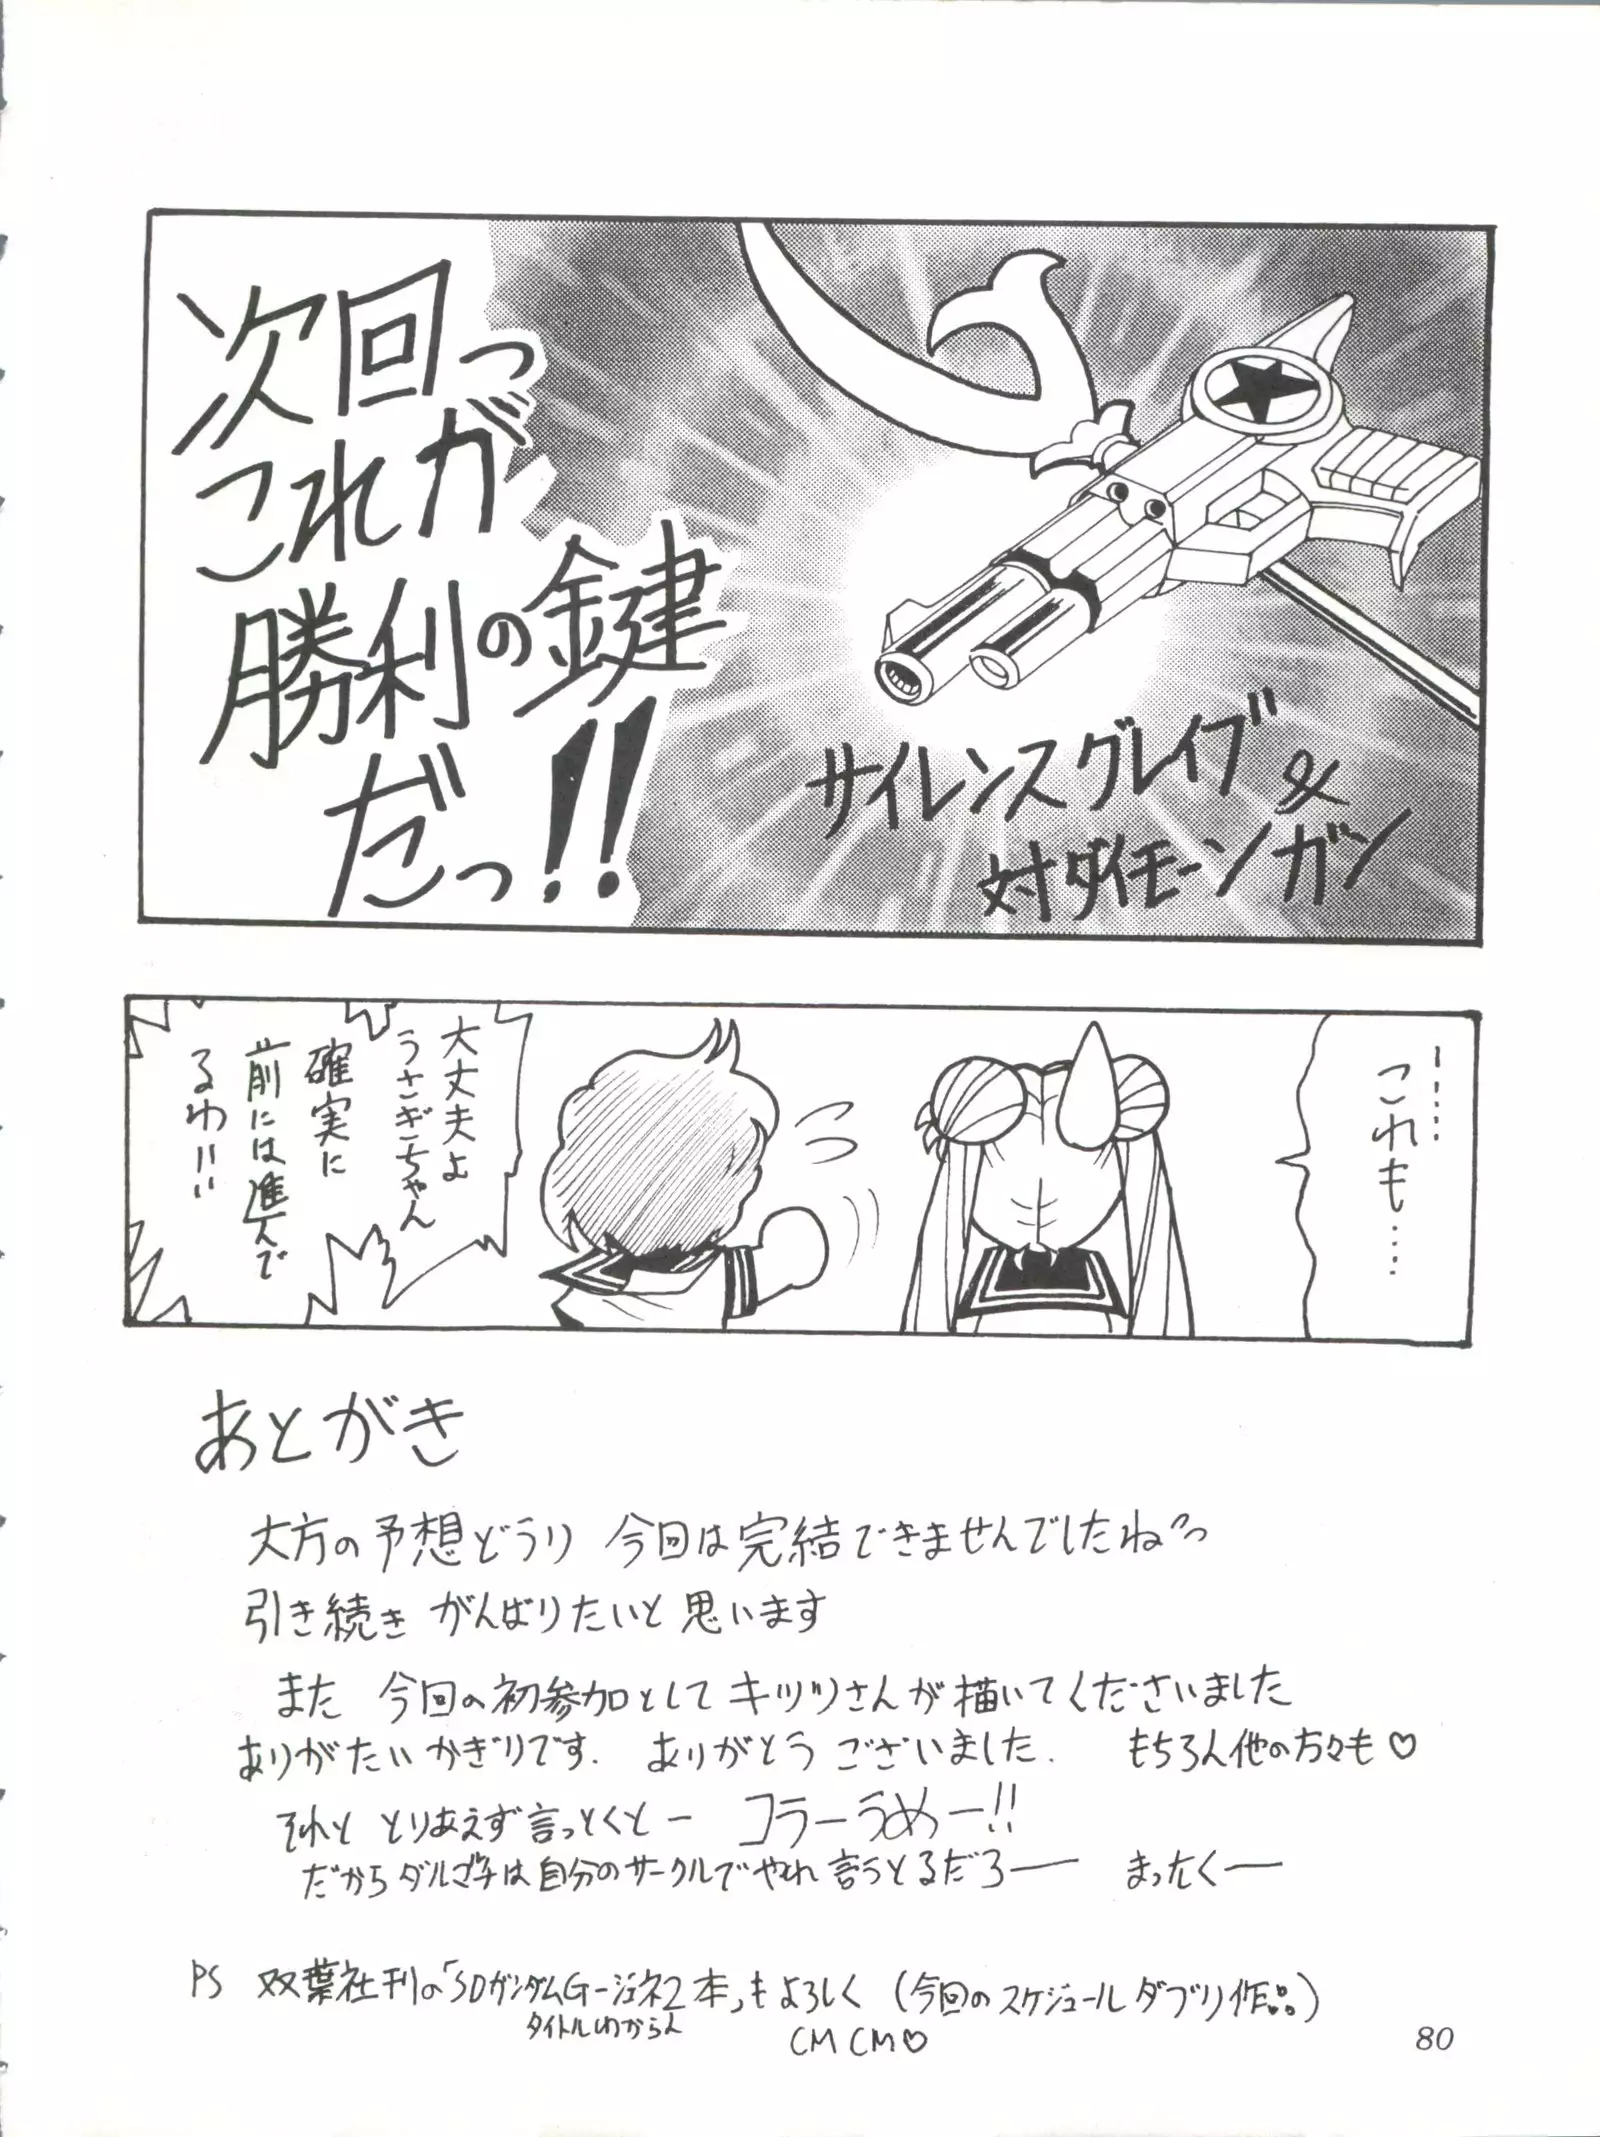 次回っ
これが
勝利の鍵
だっ!!
サイレンスグレイブ
&
対ダイモーンガン
……
これも……
大丈夫よ
うさぎちゃん
確実に
前には進んで
るわ!!
あとがき
大方の予想どうり 今回は完結できませんでしたねっ
引き続き がんばりたいと思います
また 今回の初参加としてキツツさんが描いてくださいました
ありがたいかぎりです. ありがとうございました. もちろん他の方々も♡
それと とりあえず言っとくとー コラーうめー!!
だからダルマチは自分のサークルでやれ言うとるだろー まったくー
PS 双葉社刊の「SDガンダムG-ジェネ2本」もよろしく (今回のスケジュールダブリ作品)
タイトルわからん
CM CM♡
80